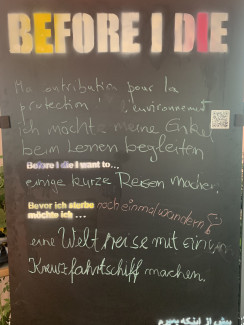 BEFORE I DIE
Ma contribution pour la
protection l'environnement
ich möchte meine Enkel
beim Lernen begleiten
Before I die I want to...
einige kurze Reisen machen.
Bevor ich sterbe
möchte ich ...
noch einmal wandern
eine Weltreise mit einem
Kreuzfahrtschiff machen.
پیش از اینکه بمیرم